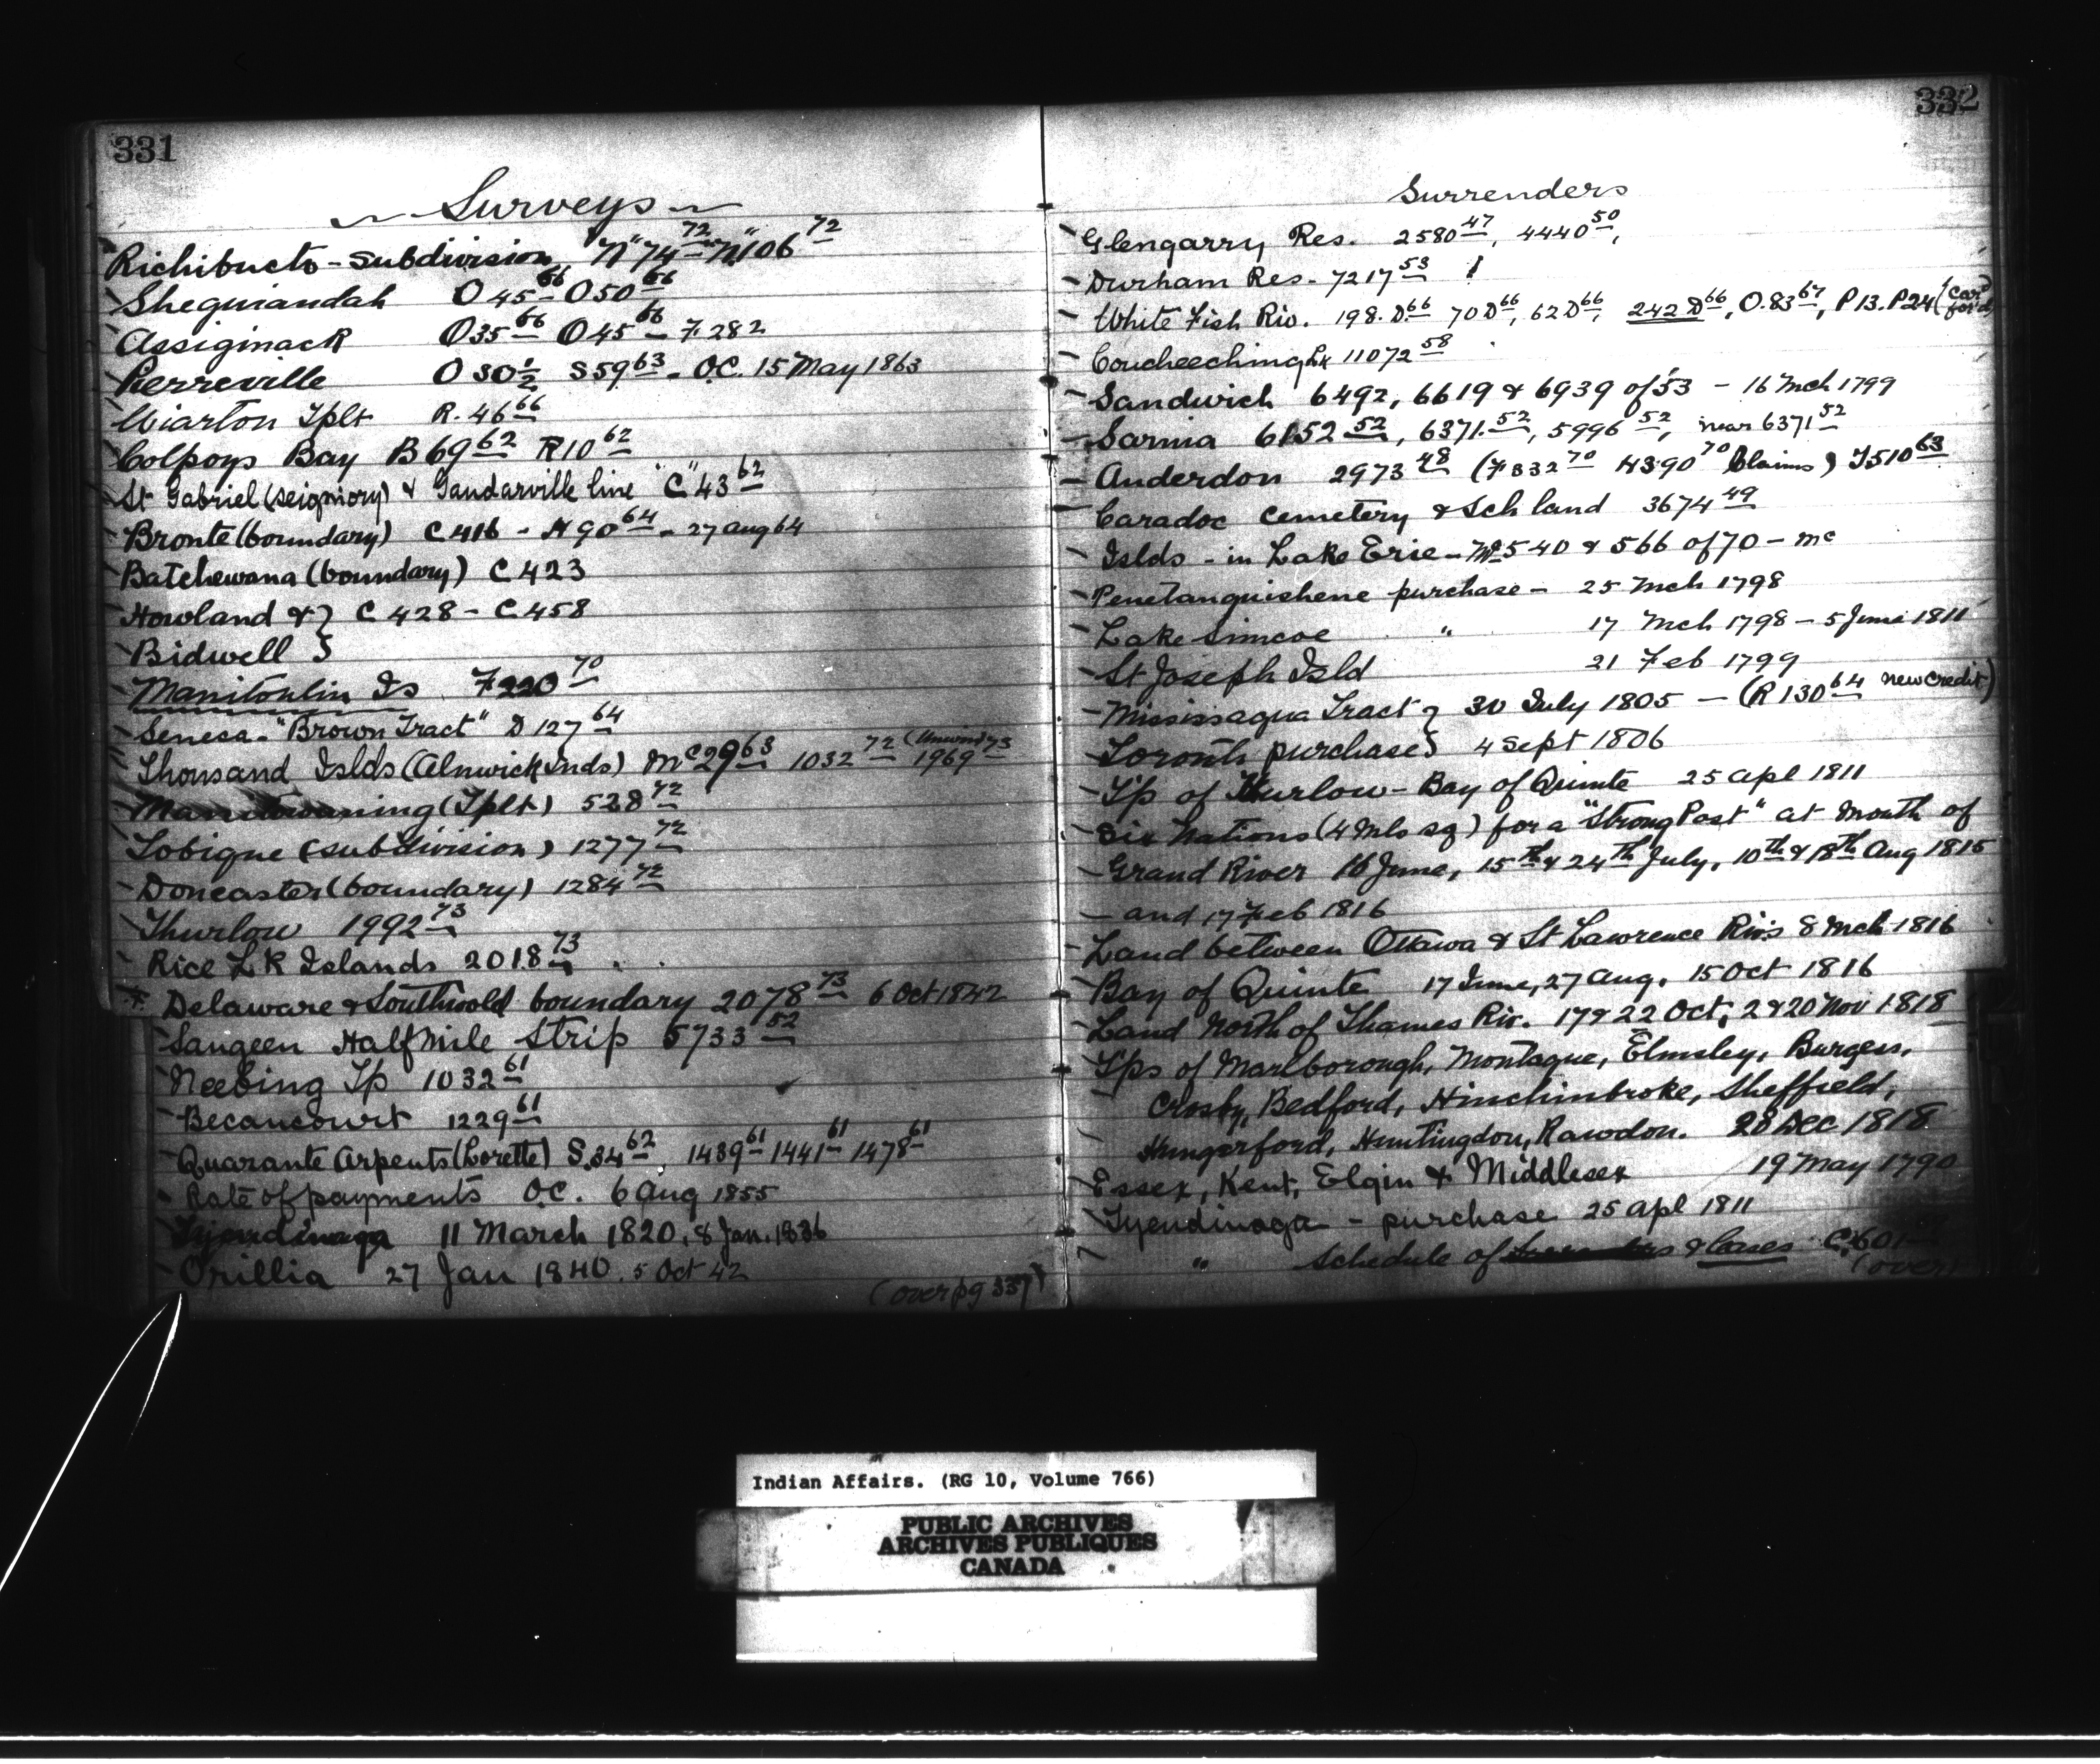 331
Surveys
Richibucto - Subdivision "N" 74 72 - "N" 106 72
Sheguiandah O 45 66 - O 50 66
Assiginack O 35 66 O 45 66 - F 282
Pierreville O 30 1/2 S 59 63 - O.C. 15 May 1863
Wiarton Tplt R. 46 66
Colpoys Bay B 69 62 R 10 62
St Gabriel (seigniory) & Gaudarville line "C" 43 62
Bronte (boundary) C 416 - H 90 64 - 27 Aug 64
Batchewana (boundary) C 423
Howland & } C 428 - C 458
Bidwell }
Manitoulin Is F 220 70
Seneca - "Brown Tract" D 127 64
Thousand Islds (Alnwick Inds) Mc 29 63 1032 72 (Unwin) 1969 73
Manitowaning (Tplt) 528 72
Tobique (subdivision) 1277 72
Doncaster (boundary) 1284 72
Thurlow 1992 73
Rice Lk Islands 2018 73
Delaware & Southwold boundary 2078 73 6 Oct 1842
Saugeen Half Mile Strip 5733 52
Neebing Tp 1032 61
Becancourt 1229 61
Quarante Arpents (Lorette) S. 34 62 1439 61 1441 61 1478 61
Rate of payments O.C. 6 Aug 1855
Tyendinaga 11 March 1820. 8 Jan. 1836
Orillia 27 Jan 1840. 5 Oct 42
(over pg 337)
332
Surrenders
Glengarry Res. 2580 47, 4440 50,
Durham Res - 7217 53
White Fish Riv. 198. D. 66 70 D 66, 62 D 66, 242 D 66, O. 83 67, P 13. P 24 (Car' for'd)
Coucheeching Lk 11072 58
Sandwich 6492, 6619 & 6939 of 53 - 16 Mch 1799
Sarnia 6152 52, 6371. 52, 5996 52, near 6371 52
Anderdon 2973 48 (F 332 70 H 390 70 Claims) T 510 63
Caradoc Cemetery & Sch land 3674 49
Islds - in Lake Erie - Mc 540 & 566 of 70 - Mc
Penetanguishene purchase - 25 Mch 1798
Lake Simcoe " 17 Mch 1798 - 5 June 1811
St Joseph Isld 21 Feb 1799
Mississagua Tract } 30 July 1805 - (R 130 64 New Credit)
Toronto purchase } 4 Sept 1806
T'p of Thurlow - Bay of Quinte 25 apl 1811
Six Nations (4 Mls sq) for a "Strong Post" at Mouth of
Grand River 16 June, 15th & 24th July, 10th & 18th Aug 1815
- and 17 Feb 1816
Land between Ottawa & St Lawrence Riv's 8 Mch 1816
Bay of Quinte 17 June, 27 Aug, 15 Oct 1816
Land North of Thames Riv. 17 & 22 Oct, 2 & 20 Nov 1818
T'ps of Marlborough, Montague, Elmsley, Burgess,
Crosby, Bedford, Hinchinbroke, Sheffield,
Hungerford, Huntingdon, Rawdon. 28 Dec 1818
Essex, Kent, Elgin & Middlesex 19 May 1790
Tyendinaga - purchase 25 apl 1811
" Schedule of & leases C. 601
(over)
Indian Affairs. (RG 10, Volume 766)
PUBLIC ARCHIVES
ARCHIVES PUBLIQUES
CANADA